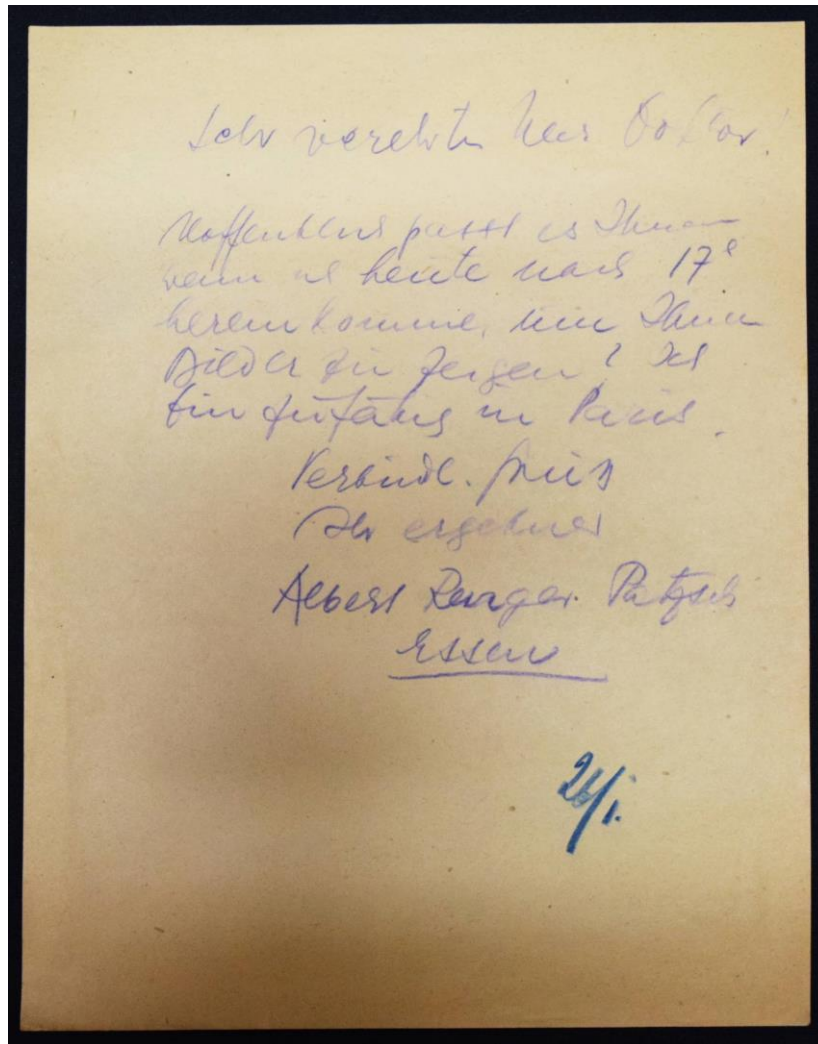 Sehr verehrter Herr Doktor!
Hoffentlich passt es Ihnen
wenn ich heute nach 17ʰ
hereinkomme, um Ihnen
Bilder zu zeigen? Ich
bin zufällig in Paris.
Verbindl. Gruß
Ihr ergebener
Albert Renger-Patzsch
Essen